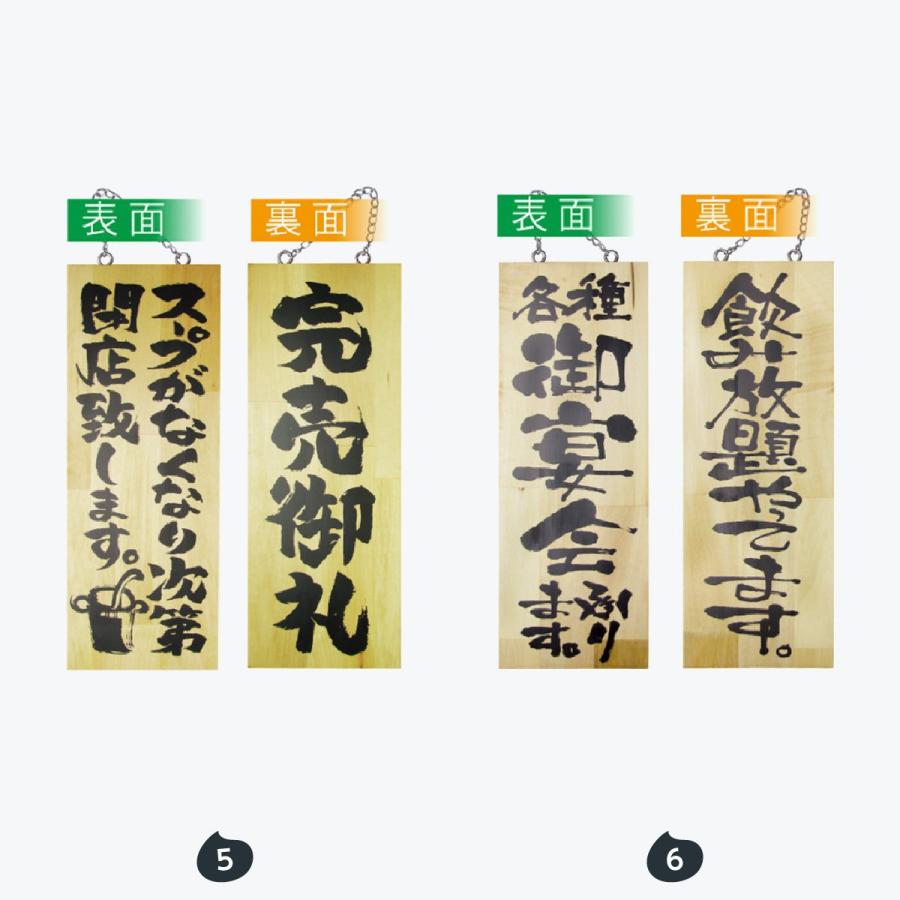 表面
スープがなくなり次第
閉店致します。
裏面
完売御礼
表面
各種
御宴会
承り
ます。
裏面
飲み放題やってます。
5
6